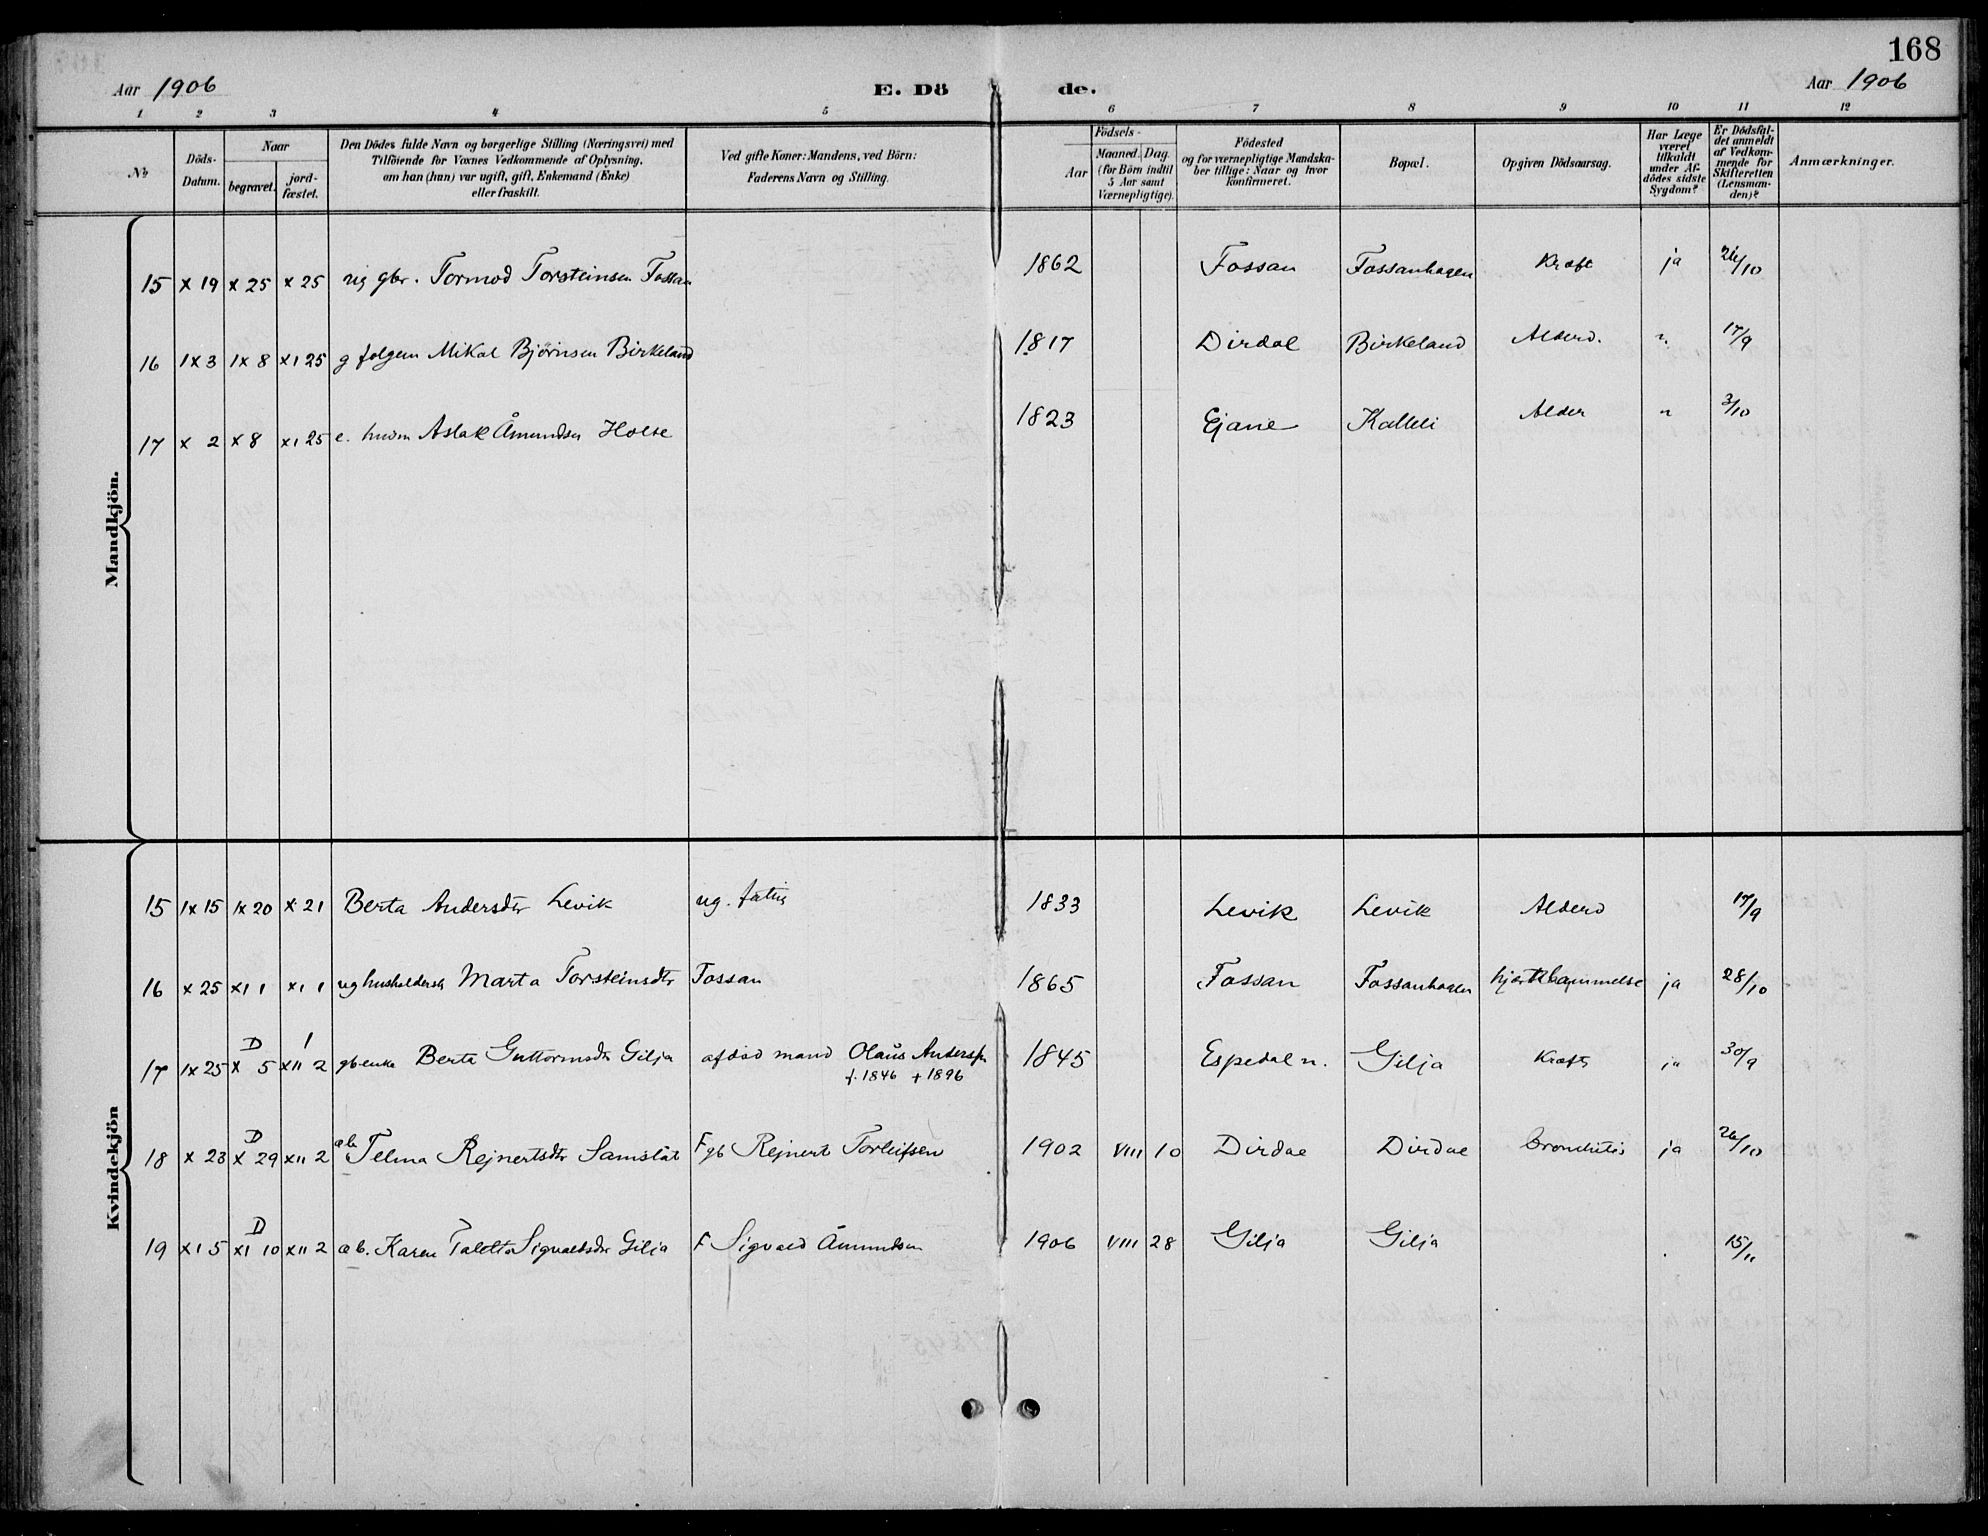 168
Aar 1906 E. Dö de. Aar 1906
1 2 3 4 5 6 7 8 9 10 11 12
№
Döds-Datum.
Naar
begravet.
jord-fæstet.
Den Dödes fulde Navn og borgerlige Stilling (Næringsvei) med
Tilföiende for Voxnes Vedkommende af Oplysning,
om han (hun) var ugift, gift, Enkemand (Enke)
eller fraskilt.
Ved gifte Koner: Mandens, ved Börn:
Faderens Navn og Stilling.
Födsels-
Aar
Maaned. Dag.
(for Börn indtil
5 Aar samt
Værnepligtige).
Födested
og for værnepligtige Mandska-
ber tillige: Naar og hvor
konfirmeret.
Bopæl.
Opgiven Dödsaarsag.
Har Læge
været
tilkaldt
under Af-
dödes sidste
Sygdom?
Er Dödsfal-
det anmeldt
af Vedkom-
mende for
Skifteretten
(Lensman-
den)?
Anmærkninger.
Mandkjön.
15 x 19 x 25 x 25 ug gbr. Tormod Torsteinsen Fossan 1862 Fossan Fossanhagen Kræft ja 26/10
16 1x 3 1x 8 x1 25 g folgem Mikal Bjørnsen Birkeland 1817 Dirdal Birkeland Alderd. n. 17/9
17 x 2 x 8 x1 25 e. husm Aslak Åmundsen Holte 1823 Ejane Kalleli Alder n 3/10
Kvindekjön
15 1x 15 1x 20 x 21 Berta Andersdtr Levik ug. fattig 1833 Levik Levik Alderd 17/9
16 x 25 x1 1 x1 1 ug husholdersk Marta Torsteinsdtr Fossan 1865 Fossan Fossanhagen ja 28/10
17 1x 25 D x 5 x11 2 gbenke Berta Guttormsdtr Gilja afdød mand Olaus Andersen 1845 Espedal n. Gilja Kræft ja 30/9
f. 1846 + 1896
18 x 23 D x 29 x11 2 ab Telma Rejnertsdtr Samslåt F gb Rejnert Torleifsen 1902 VIII 10 Dirdal Dirdal bronchitis ja 26/10
19 x1 5 D x1 10 x11 2 ab. Karen Taletta Sigvaldsdtr Gilja F Sigvald Åmundsen 1906 VIII 28 Gilja Gilja 15/11